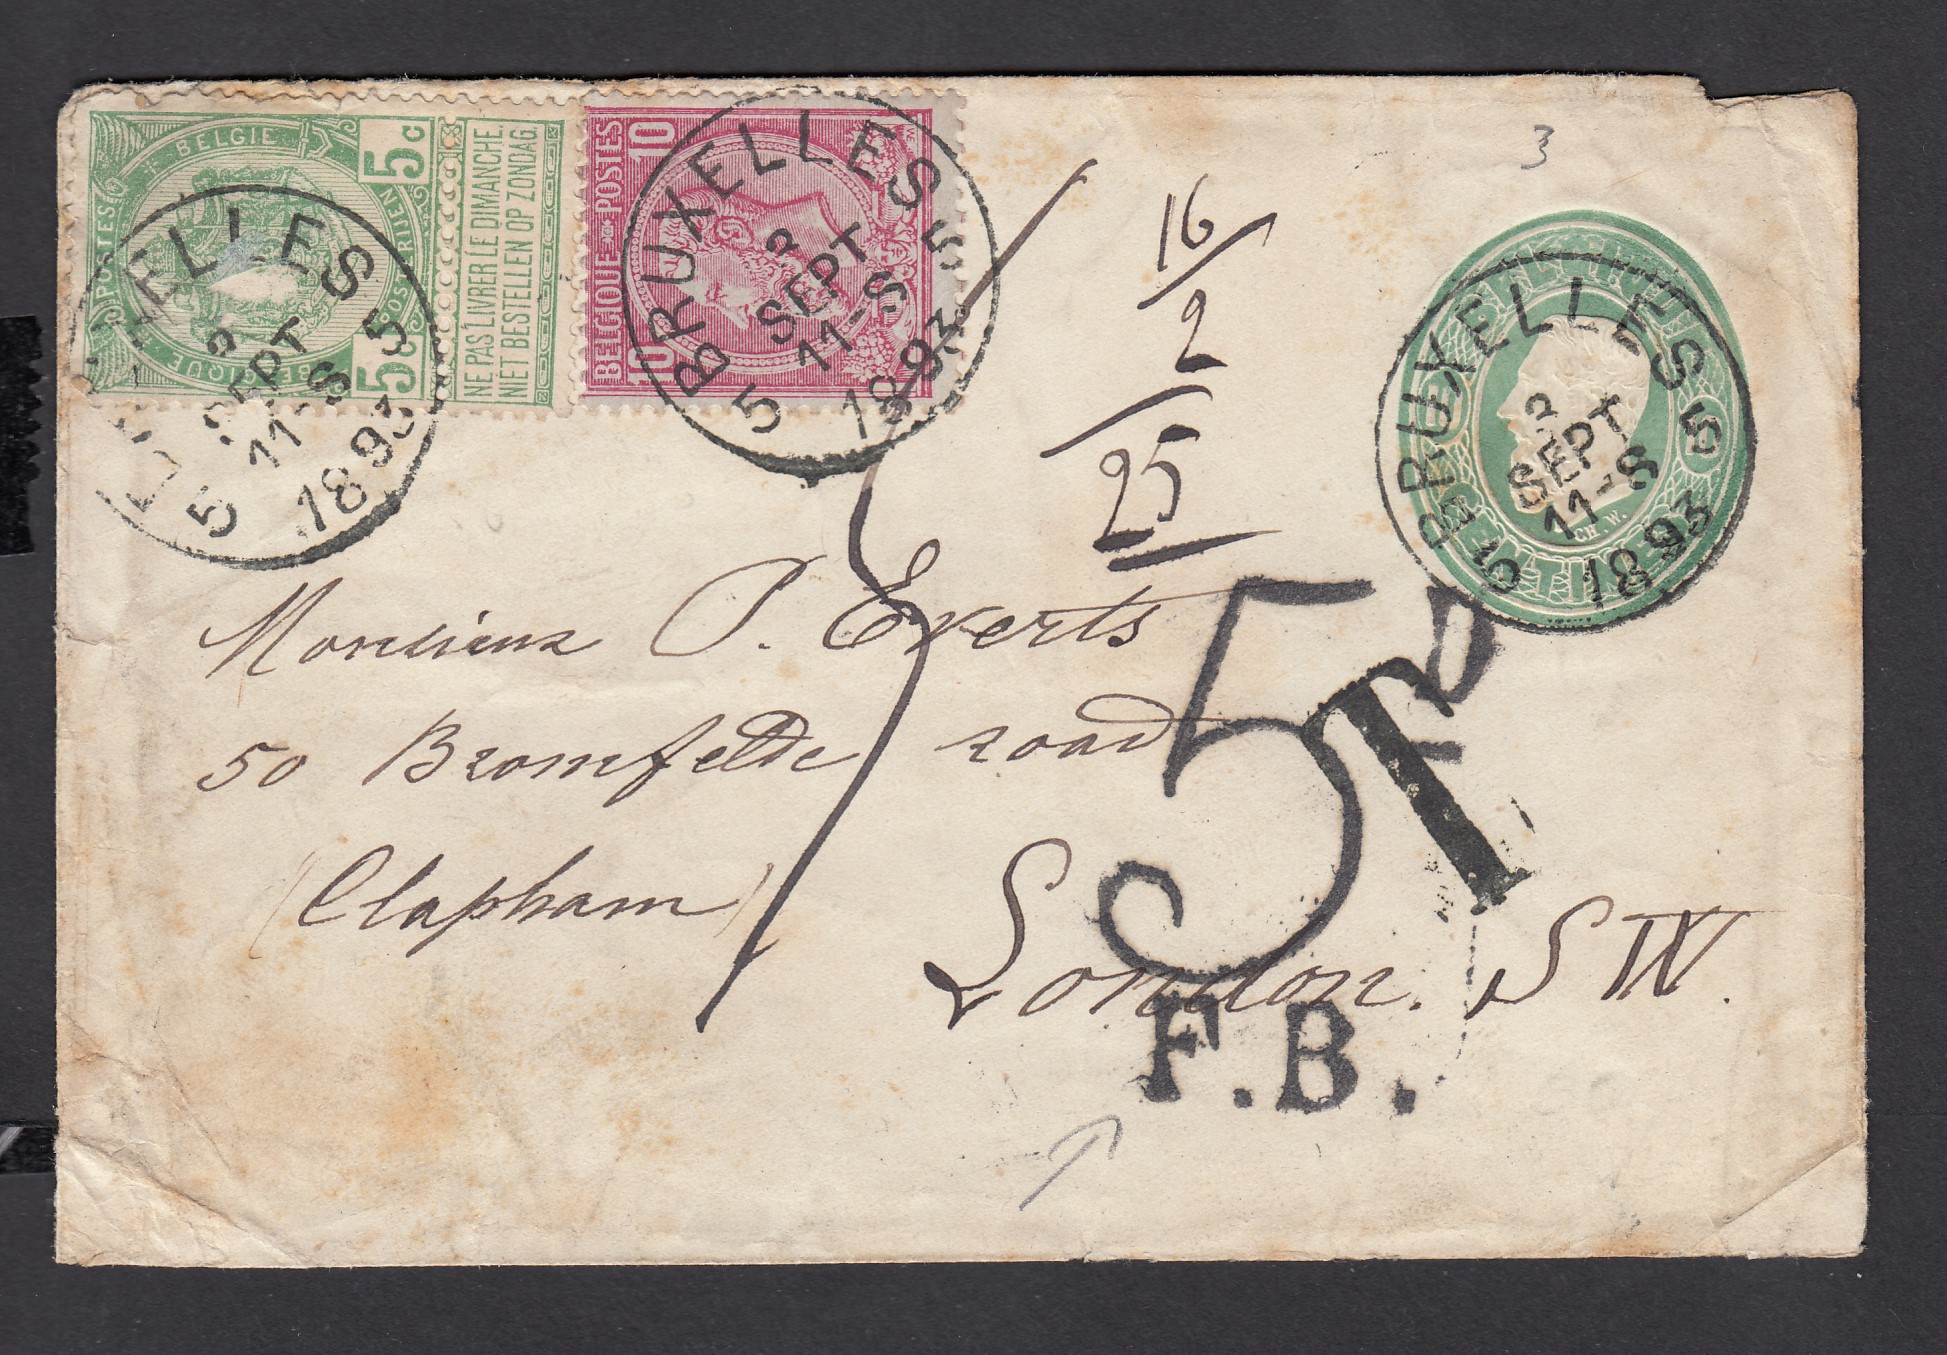 BELGIE
5c
POSTES
POSTERIJEN
BELGIQUE
5c
NE PAS LIVRER LE DIMANCHE.
NIET BESTELLEN OP ZONDAG.
BELGIQUE POSTES
10
10
BRUXELLES 5
2
SEPT
11-S
1893
5
BRUXELLES 5
2
SEPT
11-S
1893
5
3
16
2
25
CENTIMES
CH. W.
BRUXELLES 5
2
SEPT
11-S
1893
5
5D
T
Monsieur P. Everts
50 Bromfelde road
(Clapham)
London. SW.
F.B.